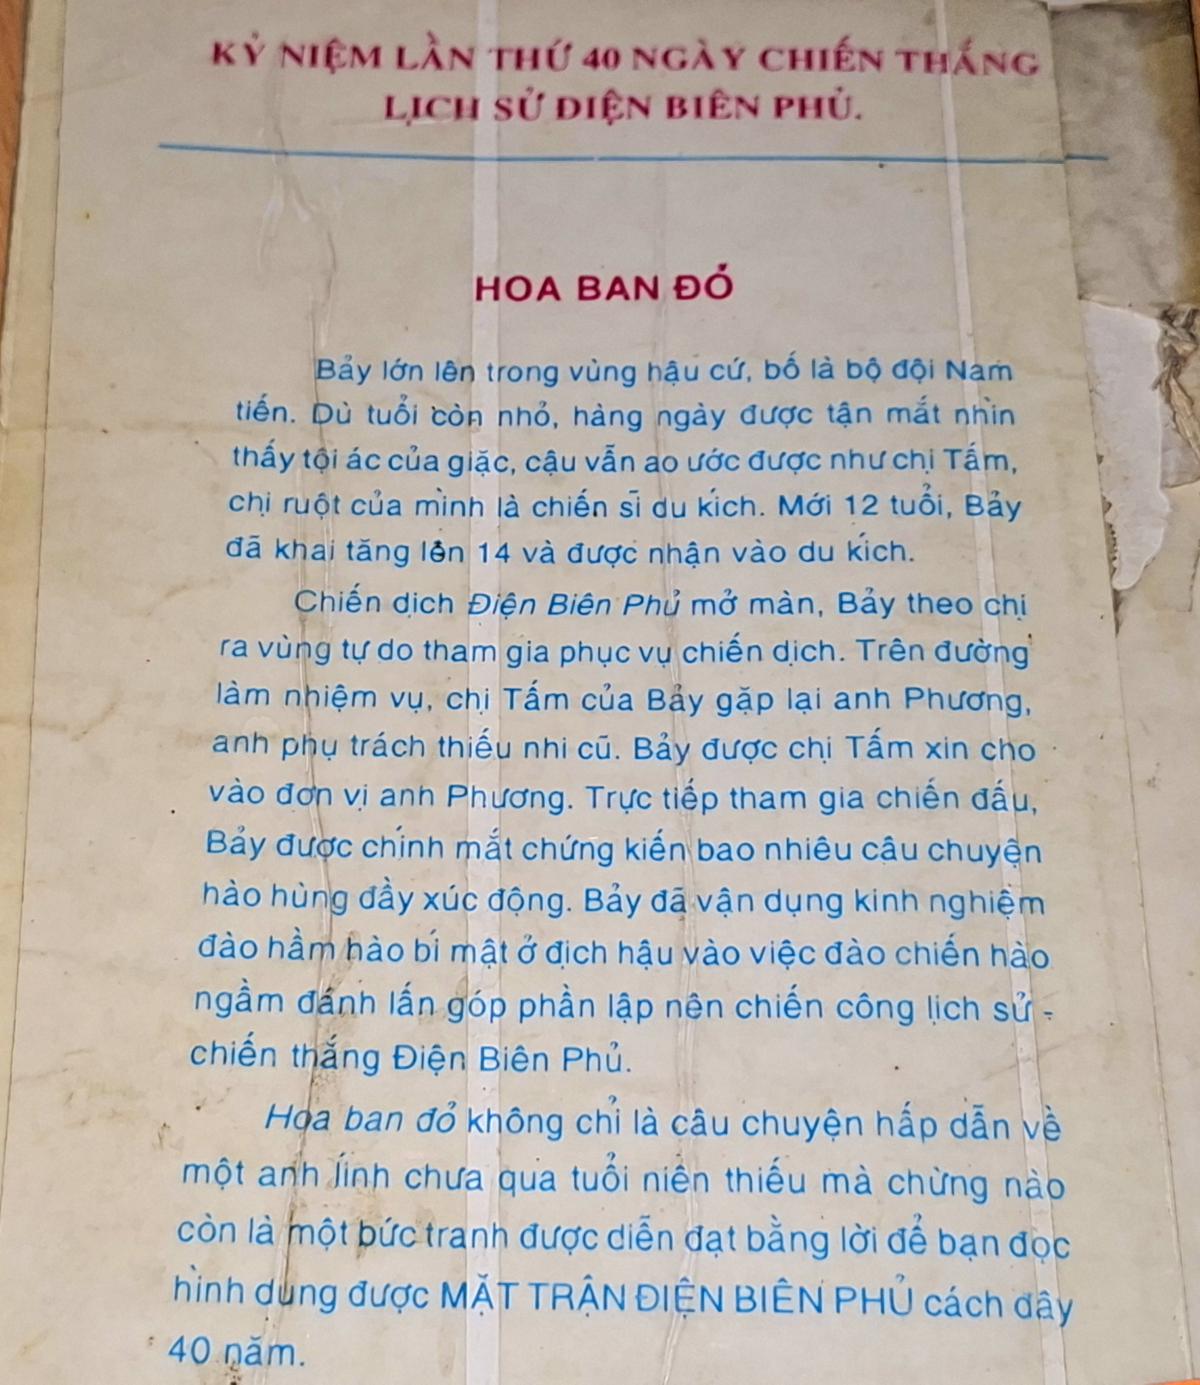 KỶ NIỆM LẦN THỨ 40 NGÀY CHIẾN THẮNG
LỊCH SỬ DIỆN BIÊN PHỦ.
HOA BAN ĐỎ
Bảy lớn lên trong vùng hậu cứ, bố là bộ đội Nam
tiến. Dù tuổi còn nhỏ, hàng ngày được tận mắt nhìn
thấy tội ác của giặc, cậu vẫn ao ước được như chị Tấm,
chị ruột của mình là chiến sĩ du kích. Mới 12 tuổi, Bảy
đã khai tăng lên 14 và được nhận vào du kích.
Chiến dịch Điện Biên Phủ mở màn, Bảy theo chị
ra vùng tự do tham gia phục vụ chiến dịch. Trên đường
làm nhiệm vụ, chị Tấm của Bảy gặp lại anh Phương,
anh phụ trách thiếu nhi cũ. Bảy được chị Tấm xin cho
vào đơn vị anh Phương. Trực tiếp tham gia chiến đấu,
Bảy được chính mắt chứng kiến bao nhiêu câu chuyện
hào hùng đầy xúc động. Bảy đã vận dụng kinh nghiệm
đào hầm hào bí mật ở địch hậu vào việc đào chiến hào
ngầm đánh lấn góp phần lập nên chiến công lịch sử -
chiến thắng Điện Biên Phủ.
Hoa ban đỏ không chỉ là câu chuyện hấp dẫn về
một anh lính chưa qua tuổi niên thiếu mà chừng nào
còn là một bức tranh được diễn đạt bằng lời để bạn đọc
hình dung được MẶT TRẬN ĐIỆN BIÊN PHỦ cách đây
40 năm.